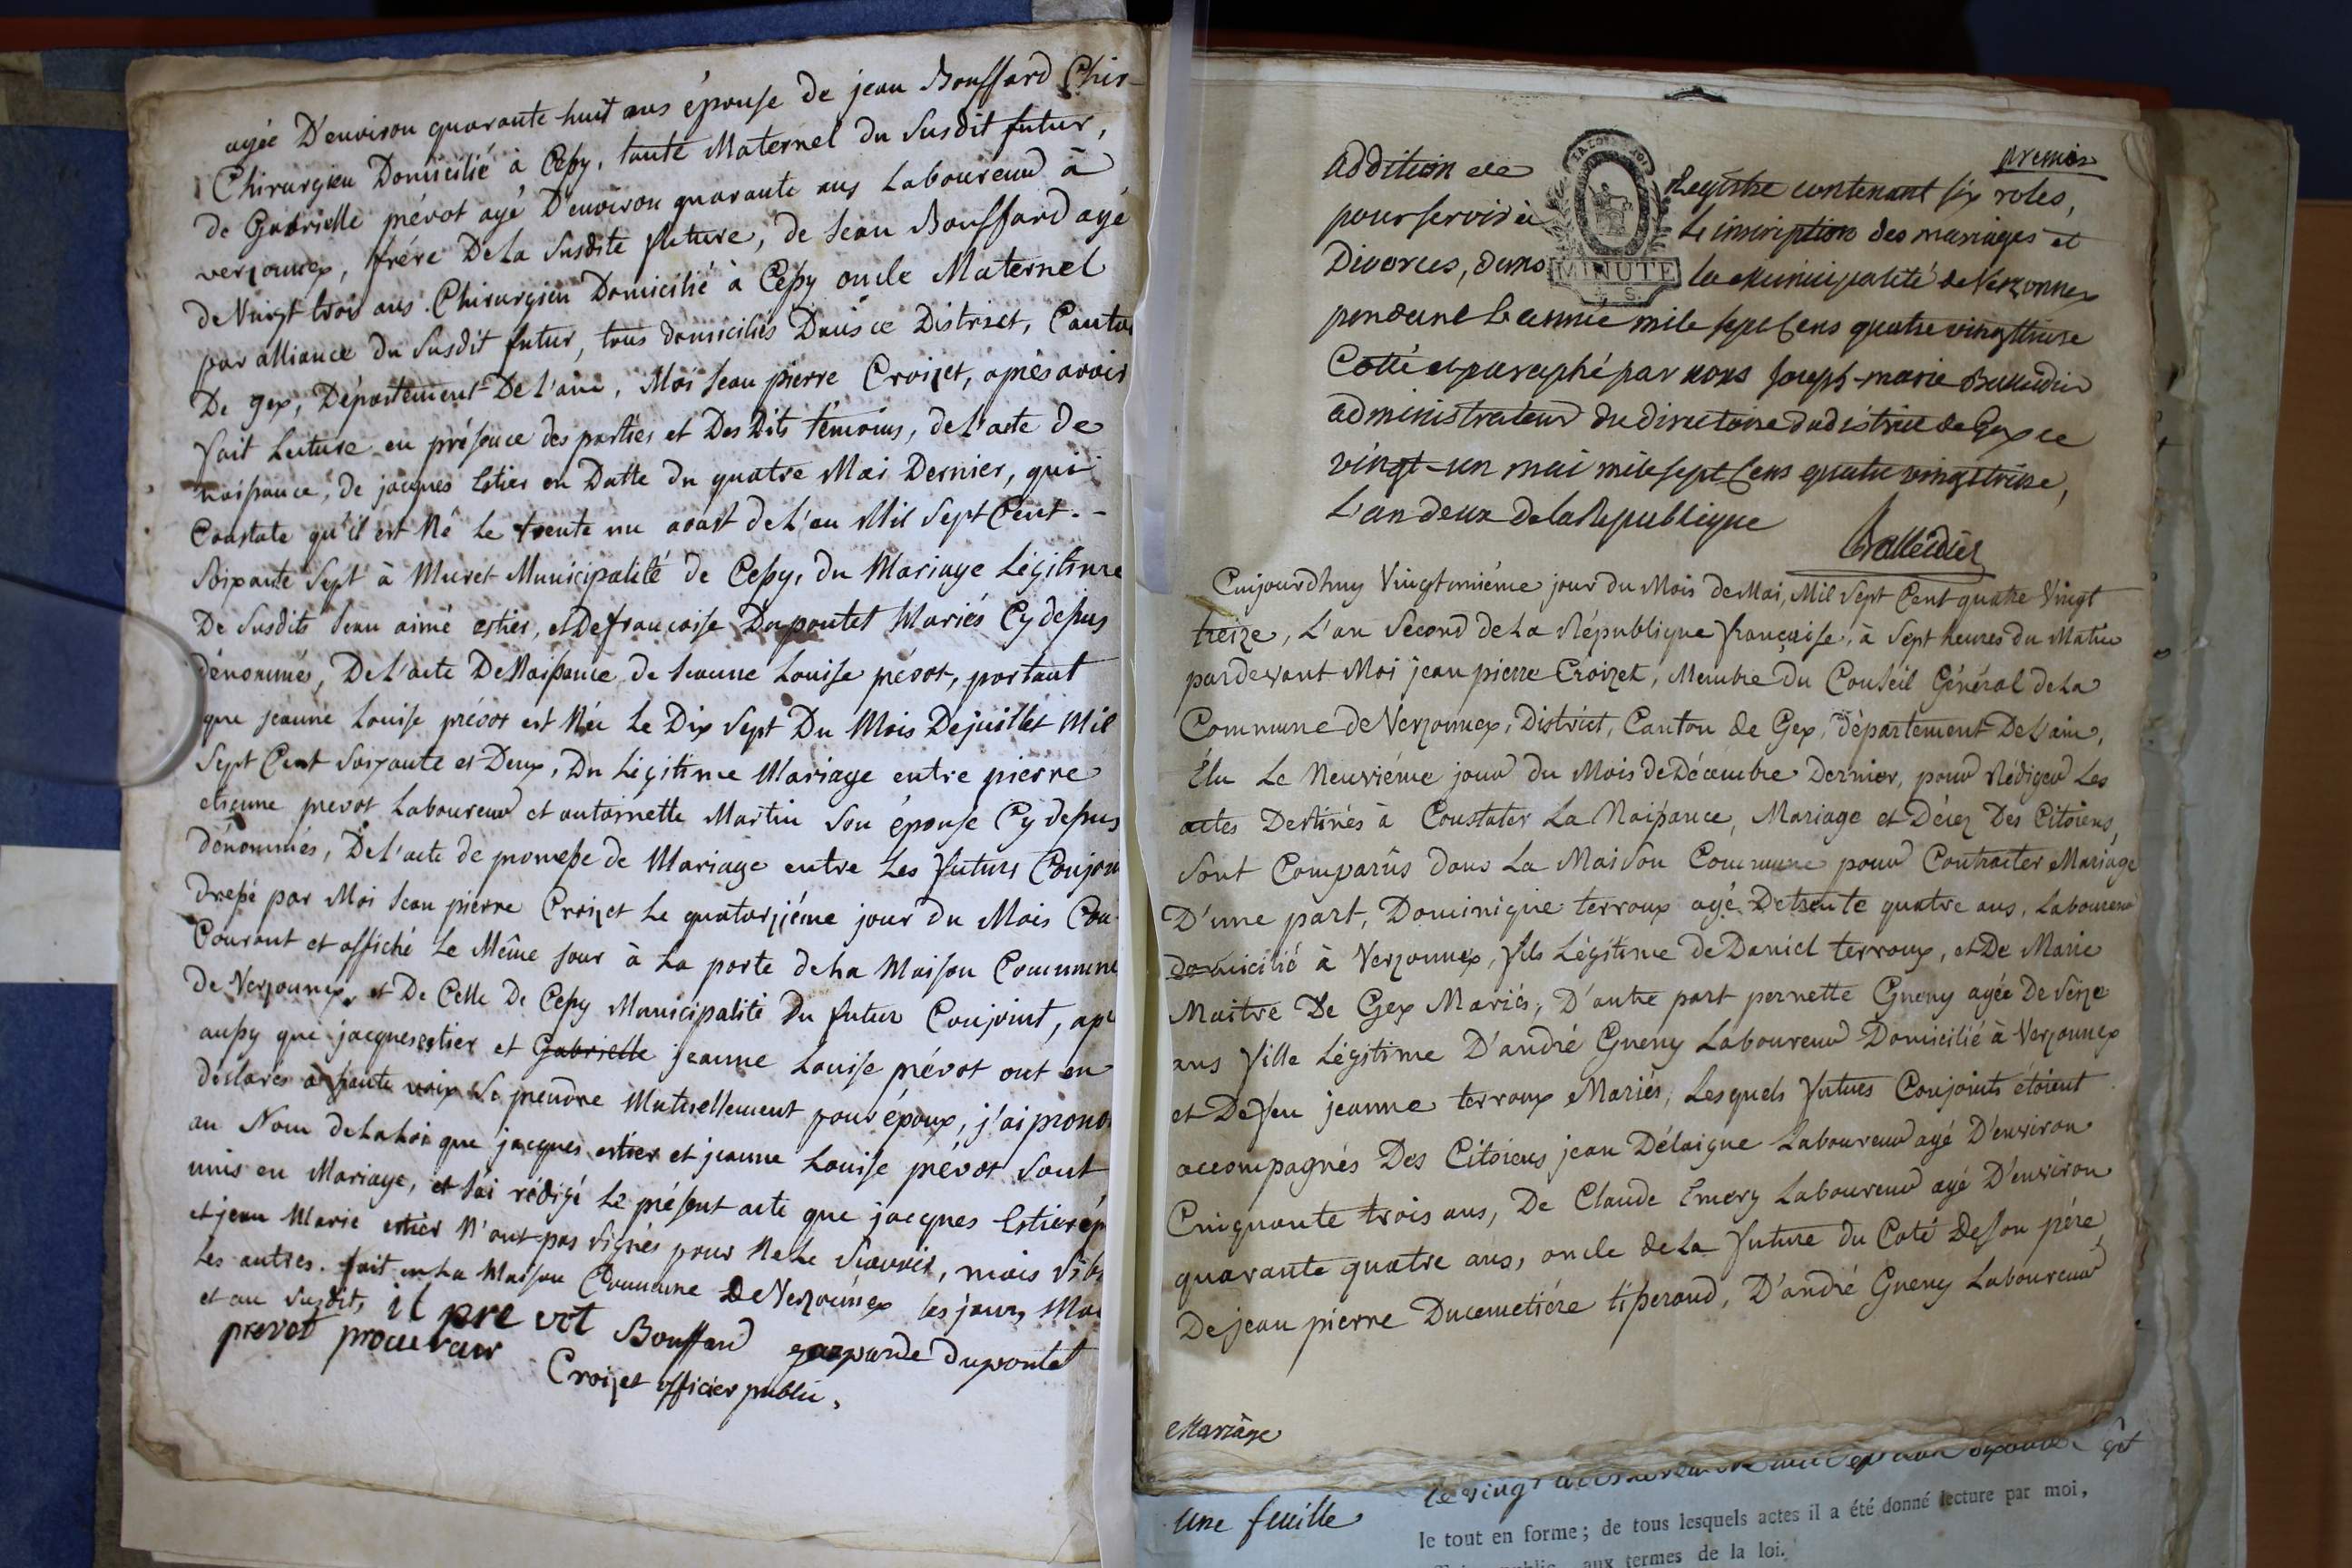 agée D'environ quarante huit ans épouse de jean Bouffard Chir-
Chirurgien Domicilié à Cessy, tante Maternel du Susdit futur,
de Gabrielle prévot agé D'environ quarante ans Laboureur à
verzonnex, frére De la Susdite future, de Jean Bouffard agé
de Vingt trois ans Chirurgien Domicilié à Cessy oncle Maternel
par alliance du Susdit futur, tous domiciliés Dans ce District, Canton
De gex, Département De l'ain, Moi Jean pierre Croizet, après avoir
fait Lecture en présence des parties et Des Dits témoins, de l'acte de
naissance, de jacques Estier en Datte du quatre Mai Dernier, qui
Constate qu'il est Né Le trente un aoust de L'an Mil Sept Cent. -
Soixante Sept à Muret Municipalité de Cessy, du Mariage Légitime
De Susdits Jean aimé estier, et De francoise Dupontet Mariés Cy dessus
dénommés, De L'acte De Naissance de Jeanne Louise prévot, portant
que jeanne Louise prévot est Née Le Dix Sept Du Mois De juillet Mil
Sept Cent Soixante et Deux, Du Légitime Mariage entre pierre
etienne prevot Laboureur et antoinette Martin Son épouse Cy dessus
dénommés, De L'acte de promesse de Mariage entre Les futurs Conjoin
dressé par Moi Jean pierre Croizet Le quatorziéme jour du Mois Cou
Courant et affiché Le Même Jour à La porte de La Maison Commune
de Verzonnex, et De Celle De Cessy Municipalité Du futur Conjoint, apr
aussy que jacques estier et Gabrielle jeanne Louise prévot ont en
déclarés à haute voix Se prendre Mutuellement pour époux, j'ai prono
au Nom de La Loi que jacques estier et jeanne Louise prévot Sont
unis en Mariage, et J'ai rédigé Le présent acte que jacques Estier ép
et jean Marie estier N'ont pas Signés pour Ne Le Scavoir, mais
Les autres. fait en La Maison Commune De Verzonnex les jour, Moi
et an Susdit,
prevot procureur Bouffard gasparde dupontet
Croizet officier public,
premier
addition de Registre contenant six roles,
pour servir à L'inscription des mariages et
Divorces, dans la Municipalité de Verzonnex
LA LOI
MINUTE
4 S.
pendant L'année mile sept Cens quatre vingt treize
Cotté et paraphé par nous Joseph-marie Balleidier
administrateur du directoire du district de Gex ce
vingt-un mai mile sept Cens quatre vingt treize,
L'an deux de la Republique
Balleidier
Cuijourdhuy Vingtuniéme jour du Mois de Mai, Mil Sept Cent quatre Vingt
treize, L'an Second de La République française, à Sept heures du Matin
pardevant Moi jean pierre Croizet, Membre Du Conseil Général de La
Commune de Verzonnex, District, Canton de Gex, département De L'ain,
Élu Le Neuviéme jour du Mois de Décembre Dernier, pour Rédiger Les
actes Destinés à Constater La Naissance, Mariage et Décez Des Citoiens,
Sont Comparûs dans La Maison Commune pour Contracter Mariage
D'une part, Dominique terroux agé De trente quatre ans, Laboureur
domicilié à Verzonnex, fils Légitime de Daniel terroux, et De Marie
Maitre De Gex Mariés, D'autre part pernette Gneny agée De Seize
ans fille Légitime D'andré Gneny Laboureur Domicilié à Verzonnex
et De feu jeanne terroux Mariés, Lesquels futurs Conjoints étoient
accompagnés Des Citoiens jean Délaigue Laboureur agé D'environ
Cinquante trois ans, De Claude Emery Laboureur agé D'environ
quarante quatre ans, oncle de La future du Coté De Son pére,
De jean pierre Ducemetiére tisserand, D'andré Gneny Laboureur
Mariage
une feuille
le tout en forme; de tous lesquels actes il a été donné lecture par moi,
aux termes de la loi.